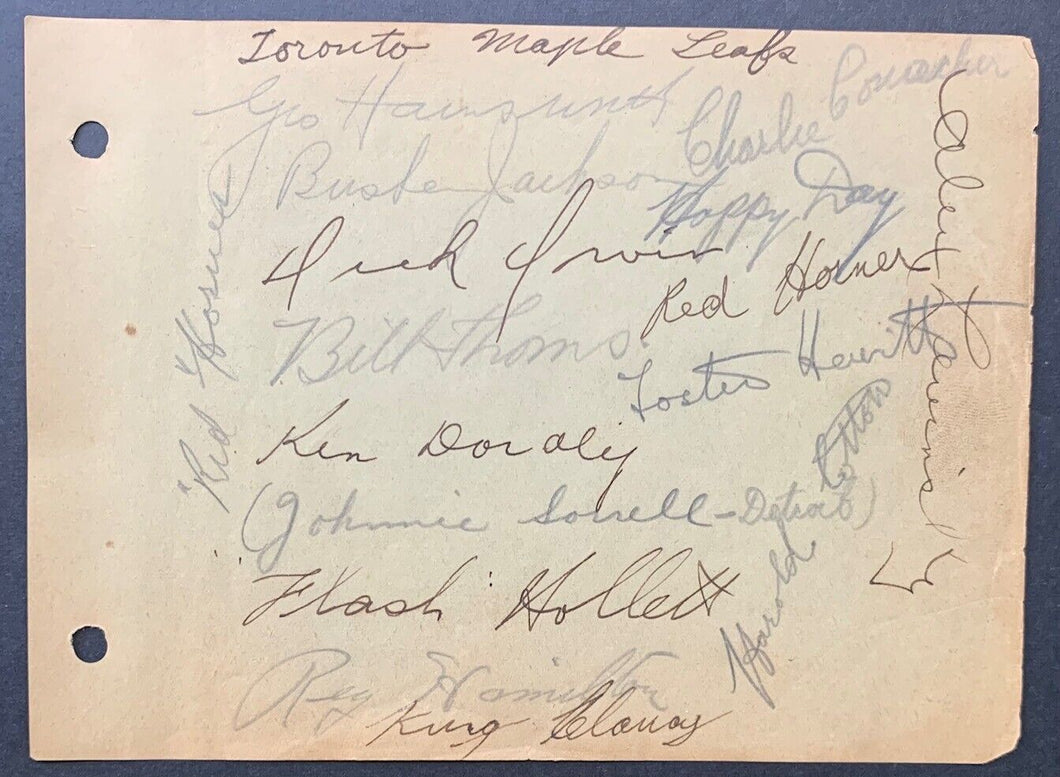 Toronto Maple Leafs
Geo Hainsworth
Charlie Conacher
Busher Jackson
Happy Day
Dick Irvin
Red Horner
Bill Thoms.
Foster Hewitt
Ken Doraty
(Johnnie Sorrell - Detroit)
Flash Hollett
Reg Hamilton
King Clancy
"Red"
Harold Cotton
Alex Levinsky